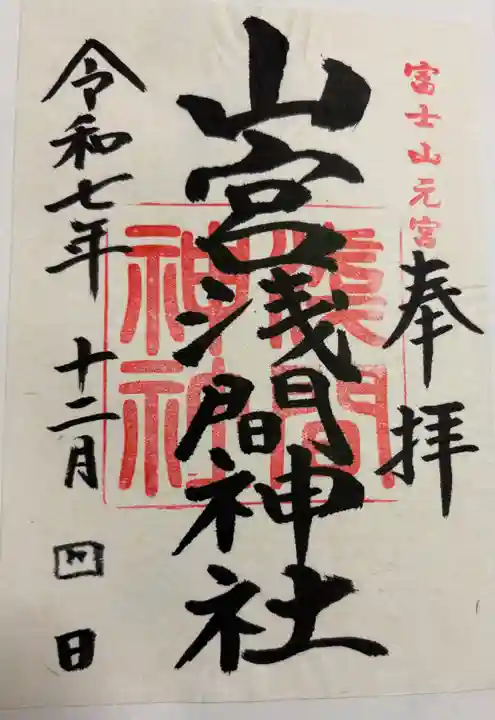 富士山元宮
奉拝
山宮浅間神社
浅間
神社
令和七年 十二月 四日